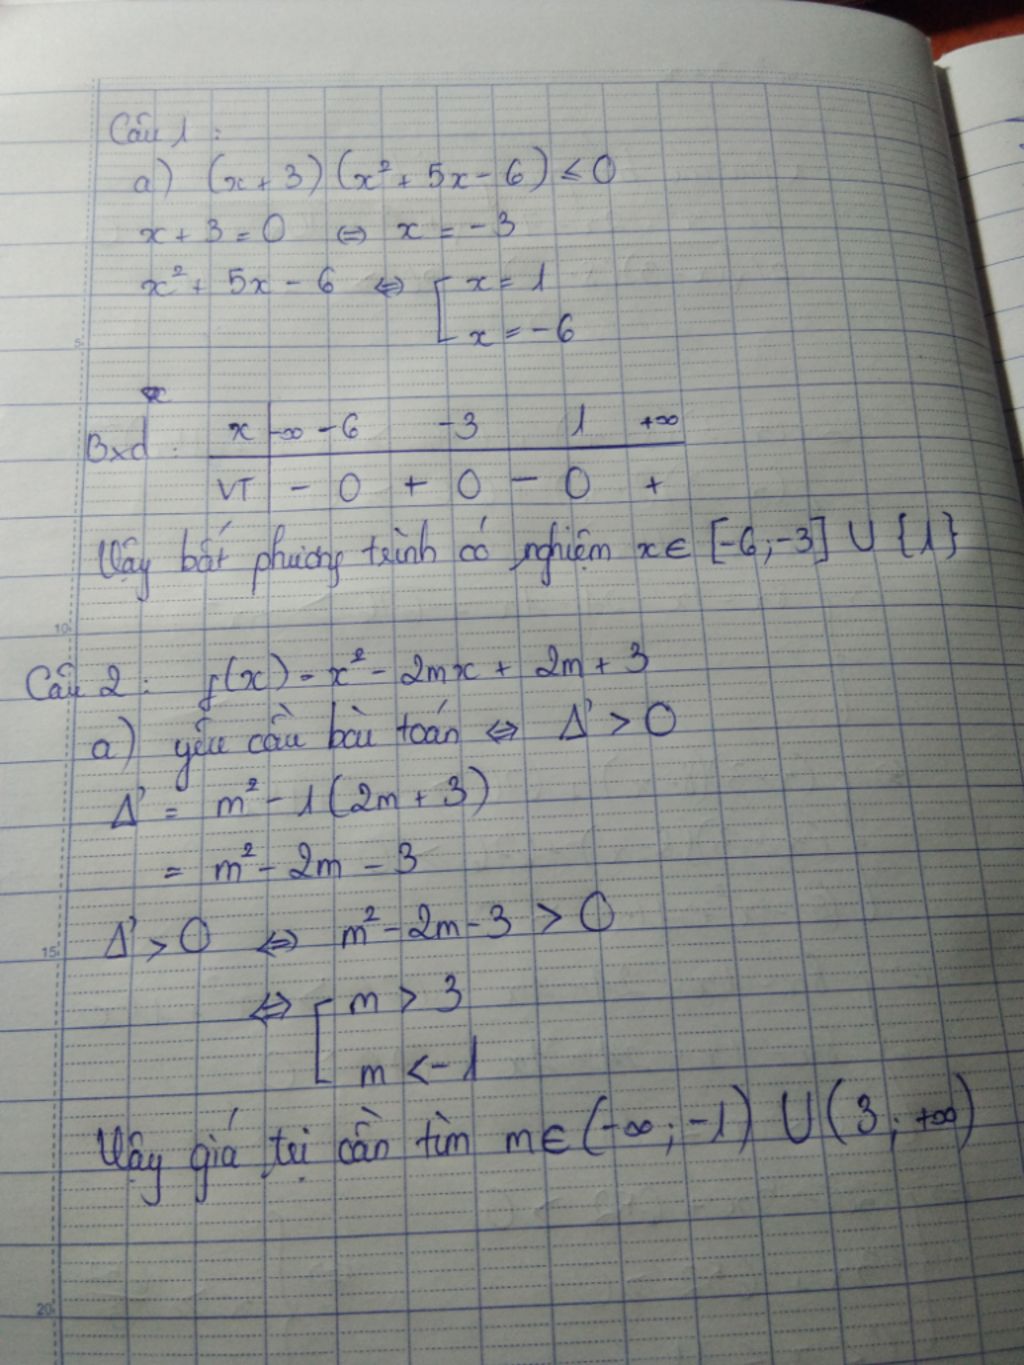 Câu 1 :
a) (x + 3) (x² + 5x - 6) ≤ 0
x + 3 = 0 ⇔ x = -3
x² + 5x - 6 ⇔ [ x = 1
x = -6
Bxd : x -∞ -6 -3 1 +∞
VT - 0 + 0 - 0 +
Vậy bất phương trình có nghiệm x ∈ [-6 ; -3] ∪ {1}
Câu 2 : f(x) = x² - 2mx + 2m + 3
a) yêu cầu bài toán ⇔ Δ' > 0
Δ' = m² - 1(2m + 3)
= m² - 2m - 3
Δ' > 0 ⇔ m² - 2m - 3 > 0
⇔ [ m > 3
m < -1
Vậy giá trị cần tìm m ∈ (-∞ ; -1) ∪ (3 ; +∞)
5
10
15
20